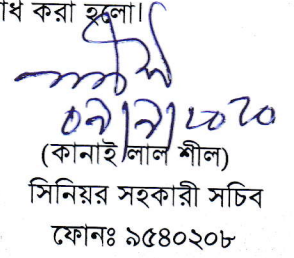 ধ করা হলো।
০৯/৯/২০২০
(কানাই লাল শীল)
সিনিয়র সহকারী সচিব
ফোনঃ ৯৫৪০২০৮